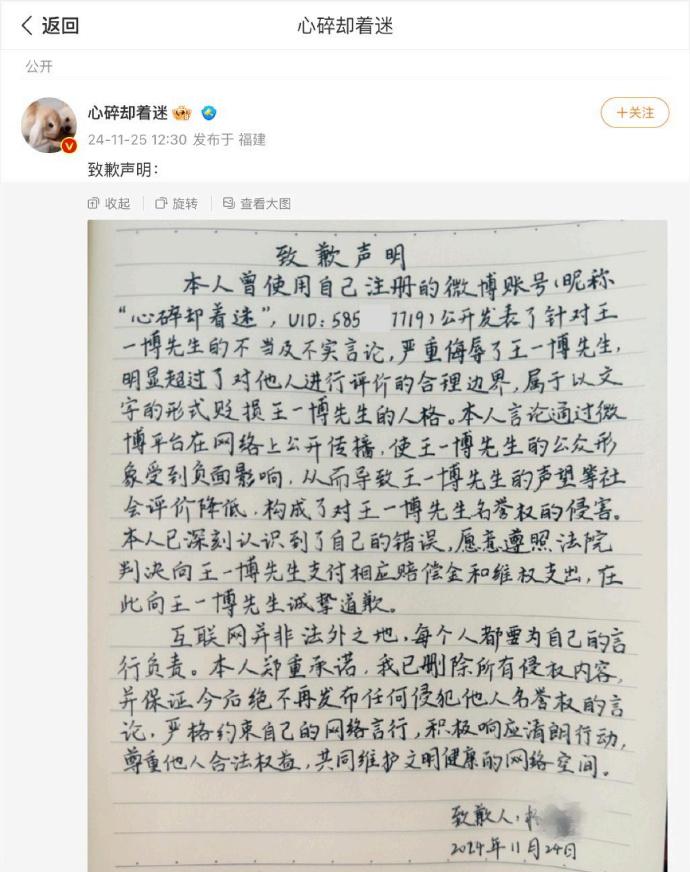 返回
心碎却着迷
公开
心碎却着迷
+关注
24-11-25 12:30 发布于 福建
致歉声明：
收起 旋转 查看大图
致歉声明
本人曾使用自己注册的微博账号（昵称
“心碎却着迷”，UID：585 7719）公开发表了针对王
一博先生的不当及不实言论，严重侮辱了王一博先生，
明显超过了对他人进行评价的合理边界，属于以文
字的形式贬损王一博先生的人格。本人言论通过微
博平台在网络上公开传播，使王一博先生的公众形
象受到负面影响，从而导致王一博先生的声望等社
会评价降低，构成了对王一博先生名誉权的侵害。
本人已深刻认识到了自己的错误，愿意遵照法院
判决向王一博先生支付相应赔偿金和维权支出，在
此向王一博先生诚挚道歉。
互联网并非法外之地，每个人都要为自己的言
行负责。本人郑重承诺，我已删除所有侵权内容，
并保证今后绝不再发布任何侵犯他人名誉权的言
论，严格约束自己的网络言行，积极响应清朗行动，
尊重他人合法权益，共同维护文明健康的网络空间。
致歉人：
2024年11月24日